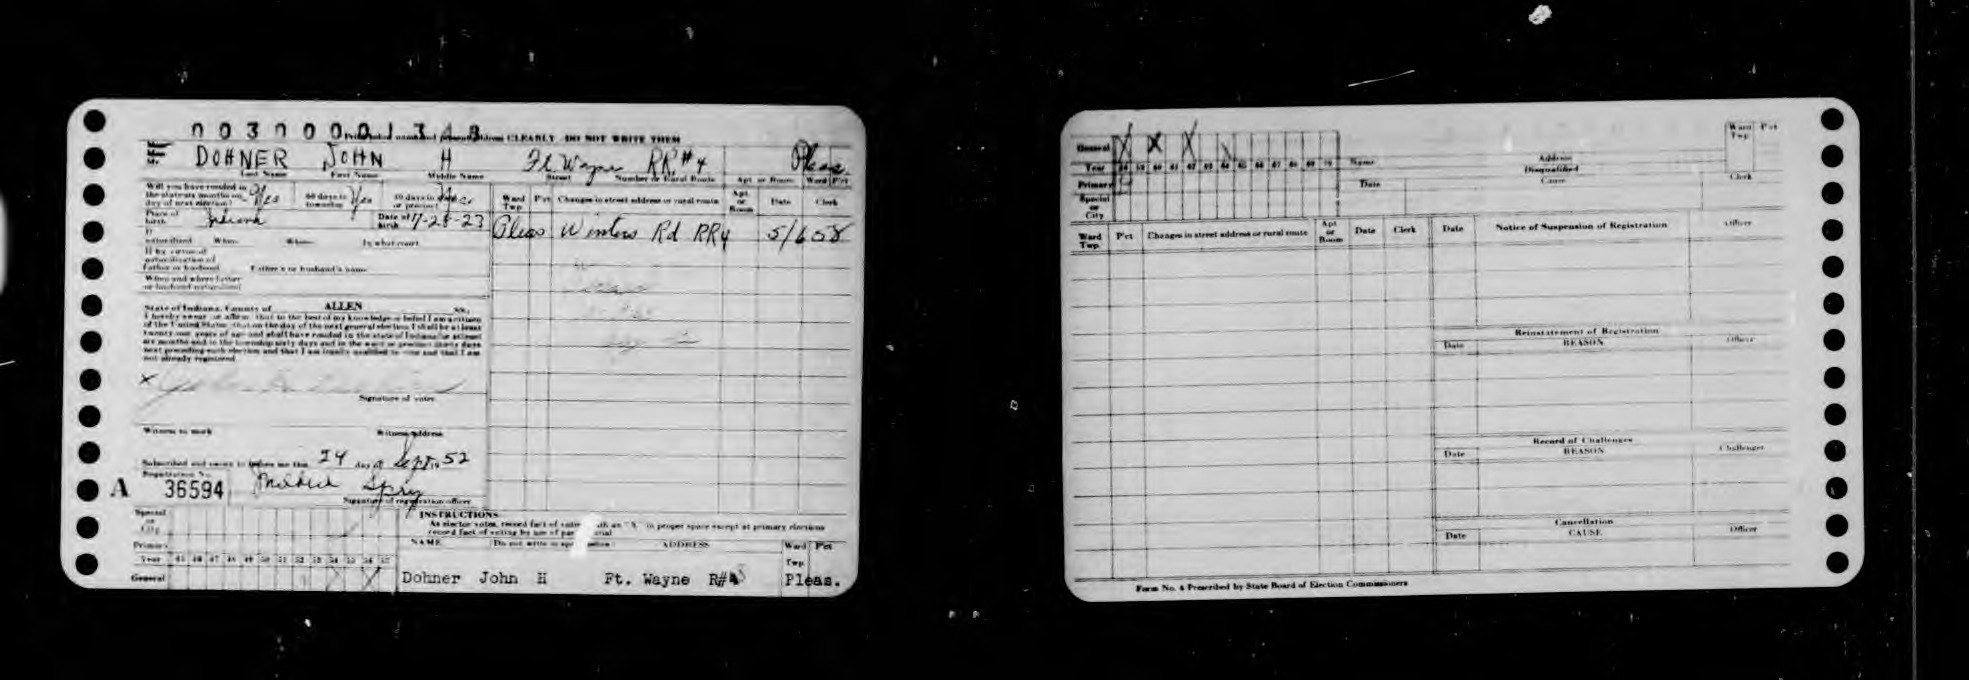 003000001348
Print desired name and present address CLEARLY DO NOT WRITE THEM
Mr. DOHNER JOHN H Ft. Wayne RR#4 Pleas.
Last Name First Name Middle Name Street Number or Rural Route Apt. or Room Ward Pct
Will you have resided in the state six months on day of next election? Yes 60 days in township Yes 30 days in or precinct Yes
Place of birth Indiana Date of birth 7-28-23
If naturalized When Where In what court
If by virtue of naturalization of father or husband Father's or husband's name
When and where father or husband naturalized
Ward Twp. P'ct Changes in street address or rural route Apt. or Room Date Clerk
Pleas Winters Rd RR4 5/6 58
State of Indiana, County of ALLEN SS:
I hereby swear or affirm that to the best of my knowledge or belief I am a citizen
of the United States that on the day of the next general election I shall be at least
twenty-one years of age and shall have resided in the state of Indiana for at least
six months and in the township sixty days and in the ward or precinct thirty days
next preceding such election and that I am legally qualified to vote and that I am
not already registered.
x John H
Signature of voter
Witness to mark Witness address
Subscribed and sworn to before me this 24 day of Sept. 19 52
Registration No.
A 36594 Spry
Signature of registration officer
Special or City
Primary
Year 45 46 47 48 49 50 51 52 53 54 55 56 57
General
INSTRUCTIONS
As elector votes, record fact of voting with an "X" in proper space except at primary elections
record fact of voting by use of party initial
NAME (Do not write in space below) ADDRESS Ward Twp. P'ct
Dohner John H Ft. Wayne R# Pleas.
General X X X
Year 58 59 60 61 62 63 64 65 66 67 68 69 70
Primary
Special or City
Name Address Ward Twp. P'ct
Disqualified
Date Cause Clerk
Ward Twp. P'ct Changes in street address or rural route Apt. or Room Date Clerk
Date Notice of Suspension of Registration Officer
Reinstatement of Registration
Date REASON Officer
Record of Challenges
Date REASON Challenger
Cancellation
Date CAUSE Officer
Form No. 4 Prescribed by State Board of Election Commissioners